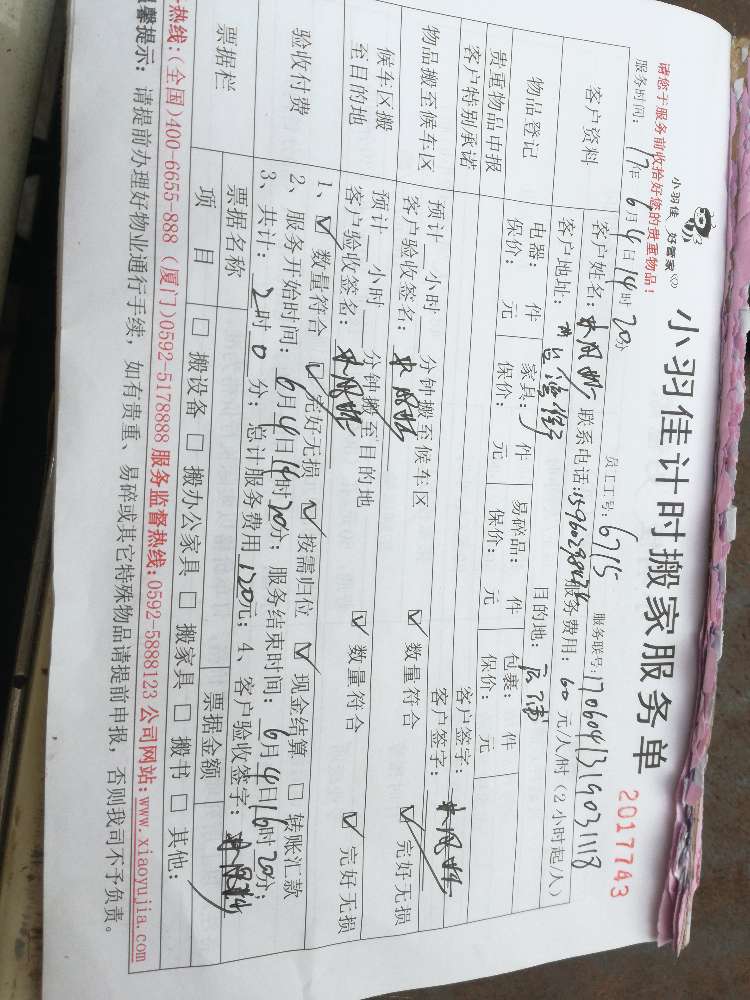 小羽佳 好管家
小羽佳计时搬家服务单
2017743
请您于服务前收拾好您的贵重物品!
员工工号: 6715 服务联号: 1706041319031118
服务时间: 17年6月4日14时20分
客户资料
客户姓名: 联系电话: 服务费用: 60元/人/时(2小时起/人)
客户地址: 目的地:
物品登记
电器: 件 家具: 件 易碎品: 件 包裹: 件
保价: 元 保价: 元 保价: 元 保价: 元
贵重物品申报 客户签字:
客户特别承诺 客户签字:
物品搬至候车区
预计 小时 分钟搬至候车区
客户验收签名: ☑ 数量符合 ☑ 完好无损
候车区搬
至目的地
预计 小时 分钟搬至目的地
客户验收签名: ☑ 数量符合 ☑ 完好无损
验收付费
1、☑ 数量符合 ☑ 完好无损 ☑ 按需归位 ☑ 现金结算 □ 转账汇款
2、服务开始时间: 6月4日14时20分; 服务结束时间: 6月4日16时20分;
3、共计: 2时0分; 总计服务费用120元; 4、客户验收签字:
票据栏
票据名称 票据金额
项 目 □ 搬设备 □ 搬办公家具 □ 搬家具 □ 搬书 □ 其他:
热线:(全国)400-6655-888 (厦门)0592-5178888 服务监督热线:0592-5888123 公司网站:www.xiaoyujia.com
馨提示: 请提前办理好物业通行手续, 如有贵重、易碎或其它特殊物品请提前申报, 否则我司不予负责。